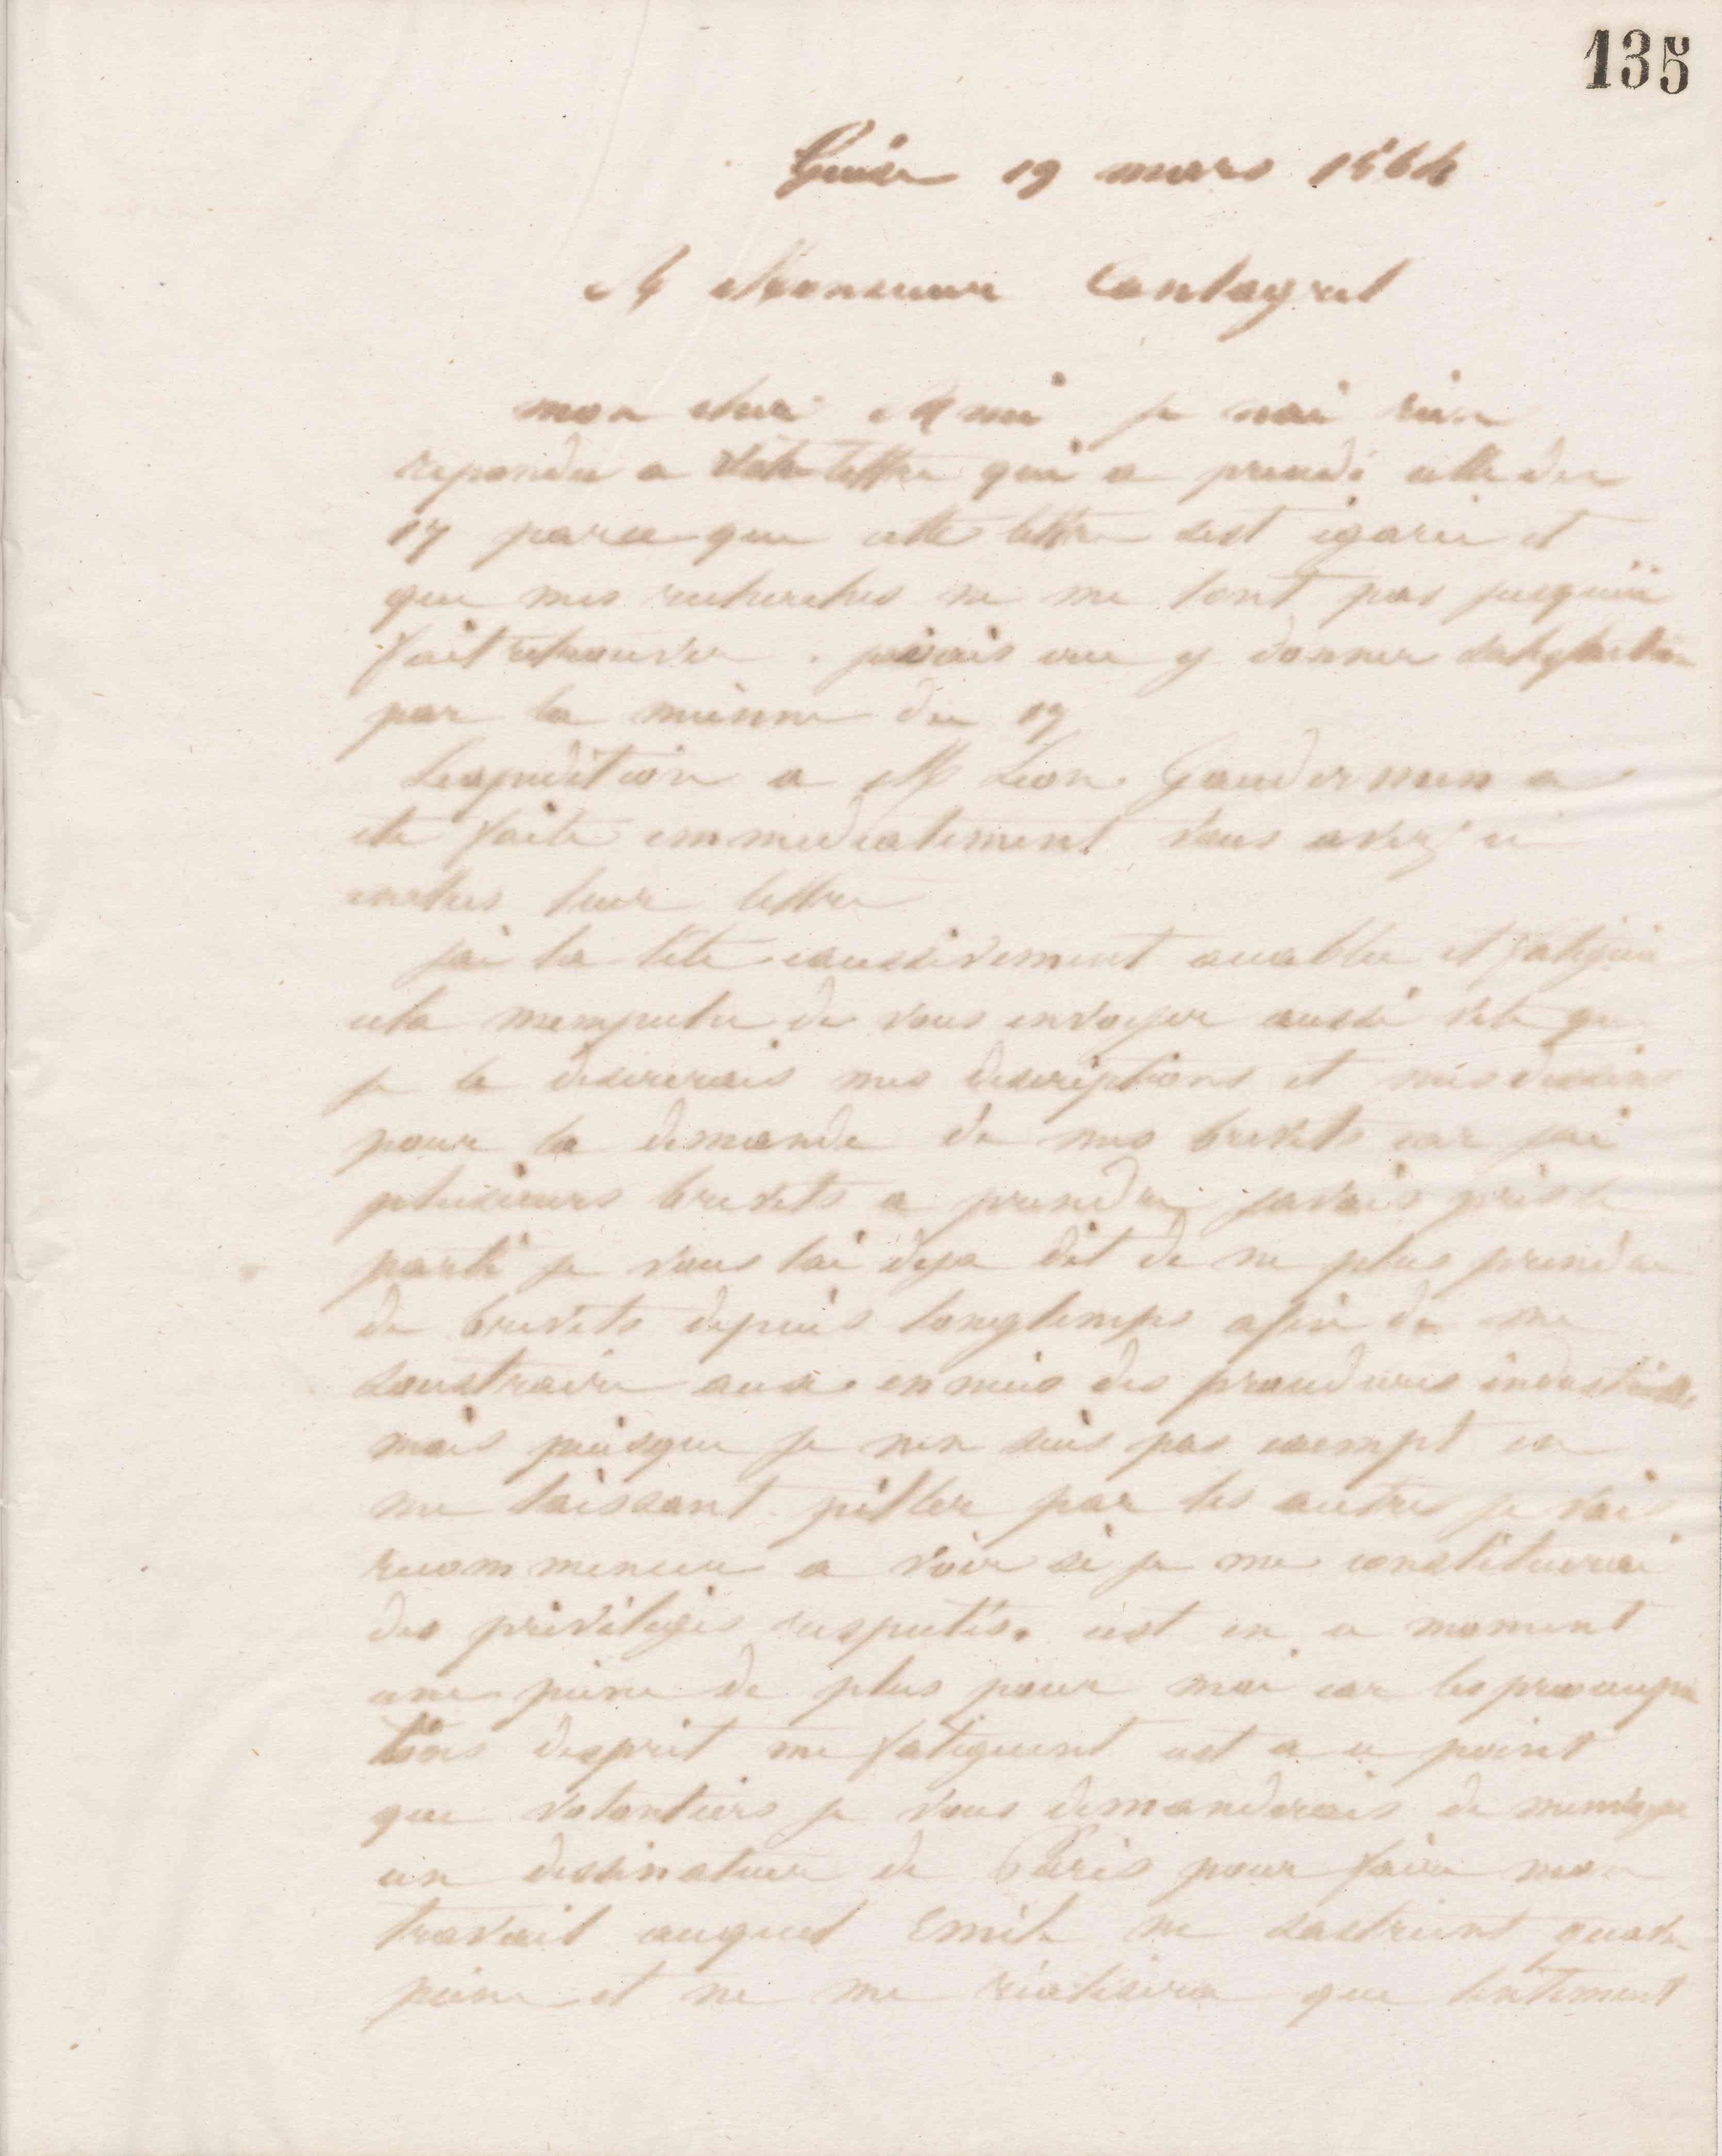 135
Guise 19 mars 1864
A Monsieur Cantagrel
mon cher Ami je nai rien
repondu a votre lettre qui a precedé celle du
17 parce que cette lettre sest égarée et
que mes recherches ne me lont pas jusquici
fait retrouver . javais cru y donner satisfaction
par la mienne du 17
Lexpedition a M Leon Gaudermen a
ete faite immediatement vous avez ci
inclus leur lettre
jai la tête excessivement accablée et fatiguée
cela mempeche de vous envoyer aussi vite que
je le desirerais mes descriptions et mes dessins
pour la demande de mes brevets car jai
plusieurs brevets a prendre javais pris le
parti je vous lai deja dit de ne plus prendre
de brevets depuis longtemps afin de me
soustraire aux ennuis des procedures industrielles
mais puisque je nen suis pas exempt en
me laissant piller par les autres je vais
recommencer a voir si je me constituerai
des privilèges respectés. cest en ce moment
une peine de plus pour moi car les preoccupa
tions desprit me fatiguent cest a ce point
que volontiers je vous demanderais de menvoyer
un dessinateur de Paris pour faire mon
travail auquel Emile ne sastreint quavec
peine et ne me réalisera que lentement